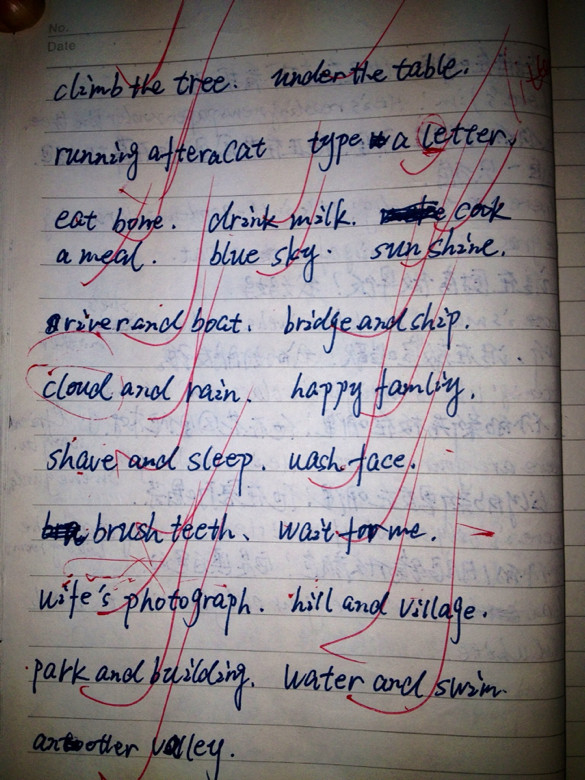 No.
Date
climb the tree. under the table.
running after a cat type a letter.
eat bone. drink milk. cook
a meal. blue sky. sun shine.
a river and boat. bridge and ship.
cloud and rain. happy famliy.
shave and sleep. wash face.
brush teeth. wait for me.
wife's photograph. hill and village.
park and building. water and swim.
another valley.